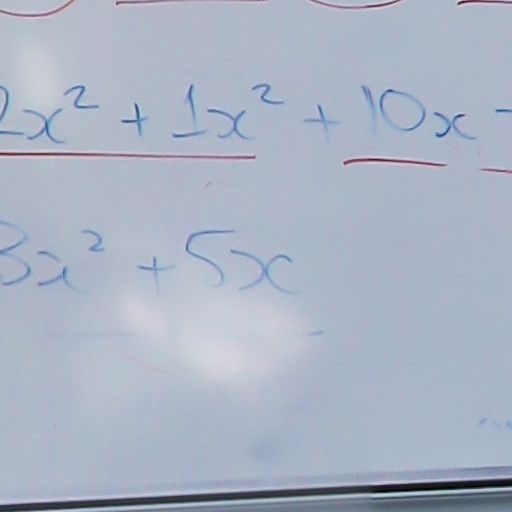 2x² + 1x² + 10x -
3x² + 5x